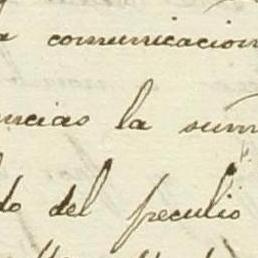 a comunicacion
ncias la sum
do del peculio